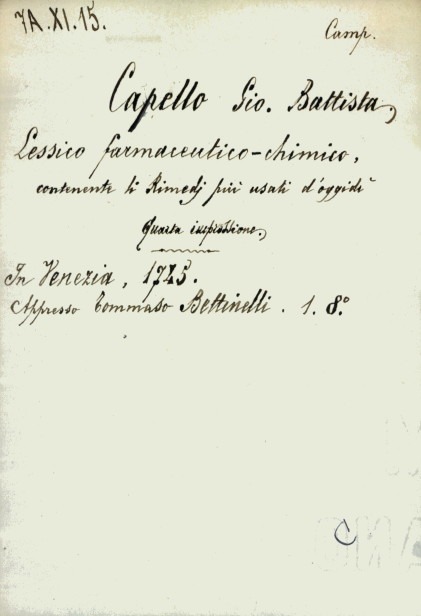 7A.XI.15.
Camp.
Capello Gio. Battista
Lessico farmaceutico-chimico,
contenente li Rimedj più usati d'oggidì
Quarta impressione.
In Venezia, 1745.
Appresso Tommaso Bettinelli. 1. 8.°
C